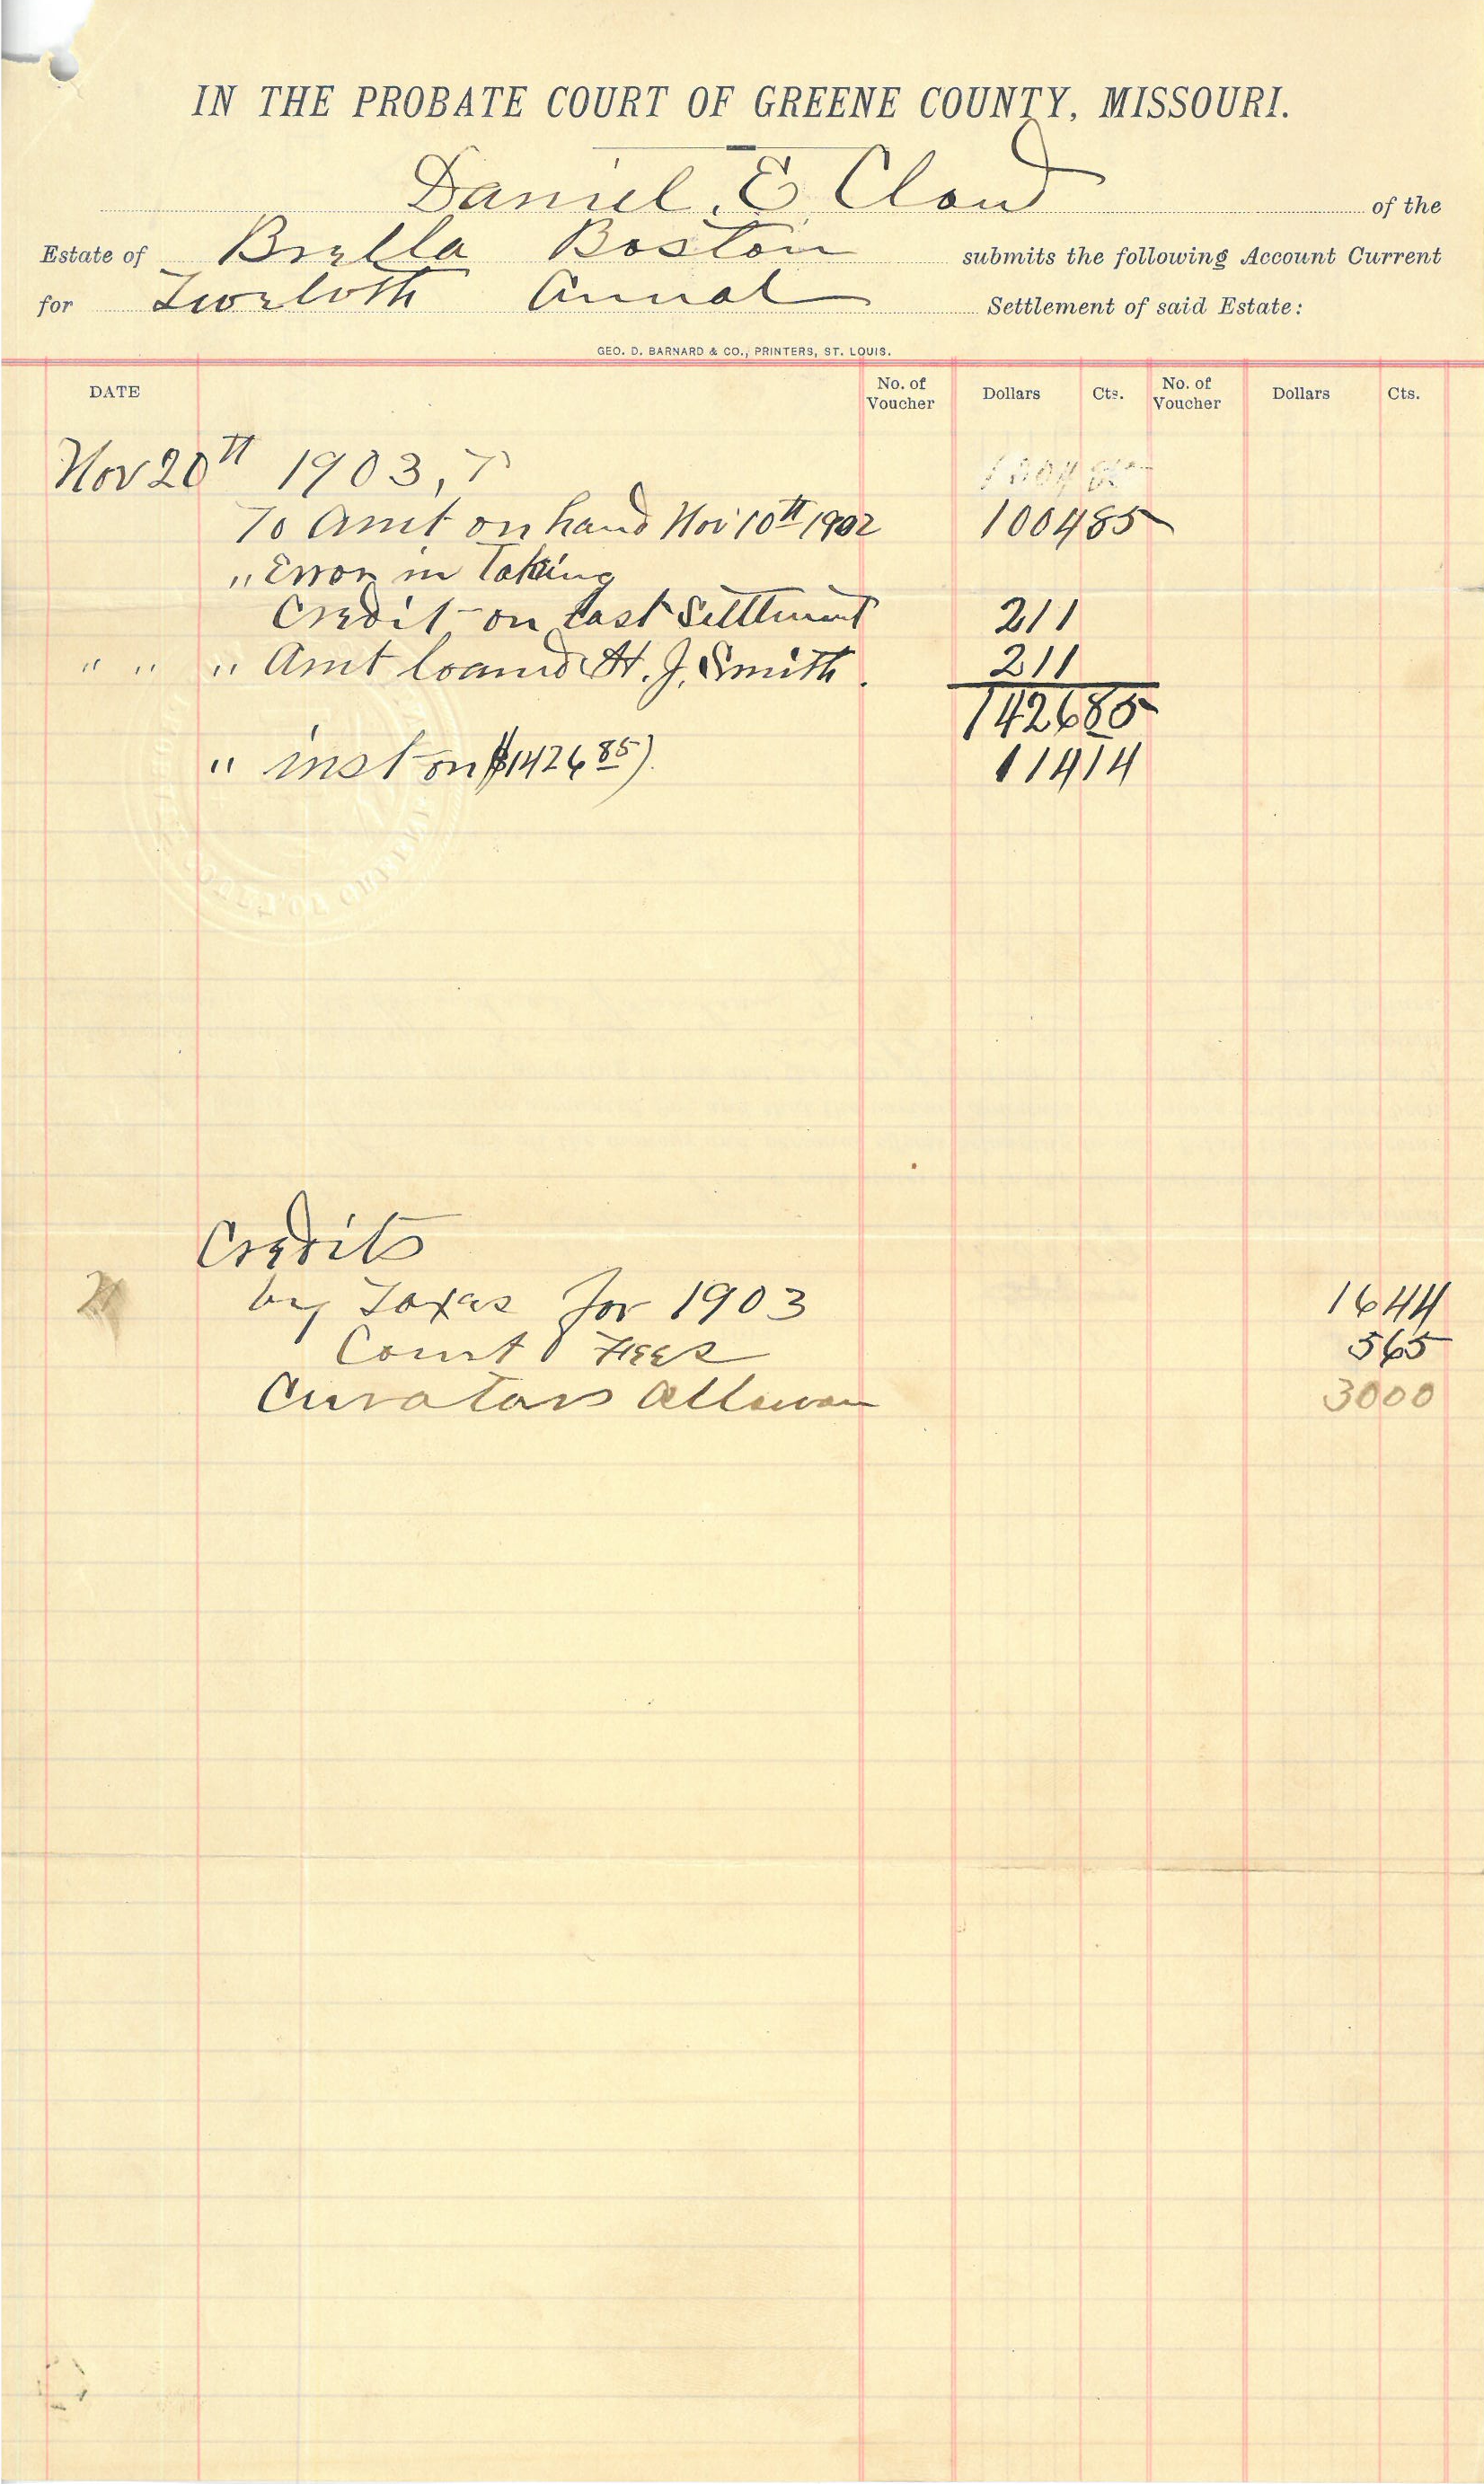 IN THE PROBATE COURT OF GREENE COUNTY, MISSOURI.
Daniel. E. Cloud of the
Estate of Brella Boston submits the following Account Current
for Twelvth Annual Settlement of said Estate:
GEO. D. BARNARD & CO., PRINTERS, ST. LOUIS.
DATE No. of Voucher Dollars Cts. No. of Voucher Dollars Cts.
Nov 20th 1903, T 1004 85
To Amt on hand Nov 10th 1902 1004 85
" Error in Taking
Credit on last Settlment 211
" " " Amt loand H. J. Smith. 211
1426 85
" inst on $1426 85) 114 14
Credits
by Taxes for 1903 16 44
Court Fees 5 65
Curators allowan 30 00